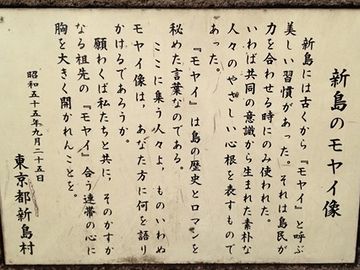 新島のモヤイ像
新島には古くから『モヤイ』と呼ぶ
美しい習慣があった。それは島民が
力を合わせる時にのみ使われた。
いわば共同の意識から生まれた素朴な
人々のやさしい心根を表すもので
あった。
『モヤイ』は島の歴史とロマンを
秘めた言葉なのである。
ここに集う人々よ、ものいわぬ
モヤイ像は、あなた方に何を語り
かけるであろうか。
願わくば私たちと共に、そのかすか
なる祖先の『モヤイ』合う連帯の心に
胸を大きく開かれんことを。
昭和五十五年九月二十五日
東京都新島村